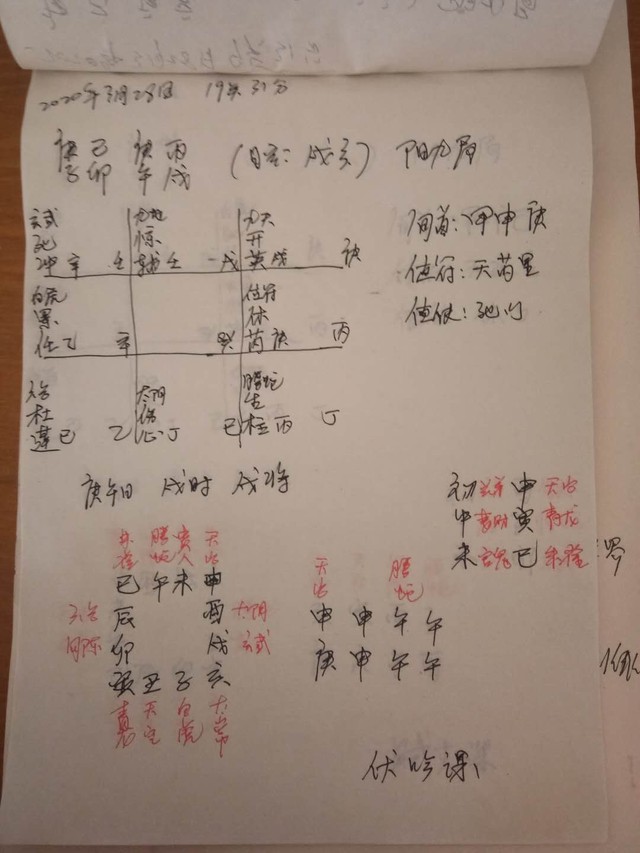 2020年3月28日 19点31分
庚 己 庚 丙 (日空:戌亥) 阳九局
子 卯 午 戌
玄武 九地 九天
死 惊 开
冲辛 壬 辅壬 戊 英戊 庚
旬首:甲申庚
值符:天芮星
值使:死门
白虎 值符
景 休
任乙 辛 癸 芮庚 丙
六合 太阴 腾蛇
杜 伤 生
蓬己 乙 心丁 己 柱丙 丁
庚午日 戌时 戌将
初 兄弟 申 天后
中 妻财 寅 青龙
末 官鬼 巳 朱雀
朱雀 腾蛇 贵人 天后
巳 午 未 申
六合 辰 酉 太阴
勾陈 卯 戌 玄武
寅 丑 子 亥
青龙 天空 白虎 太常
天后 腾蛇
申 申 午 午
庚 申 午 午
伏吟课